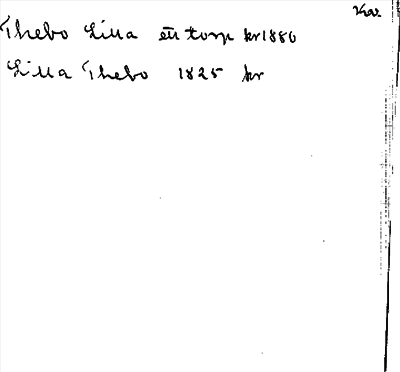 Kar.
Thebo Lilla ett torp kr 1880
Lilla Thebo 1825 kr